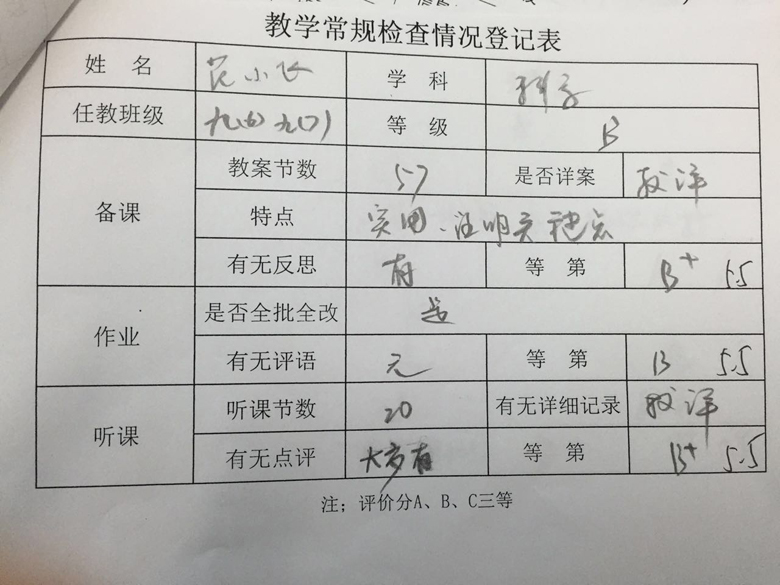 教学常规检查情况登记表
姓 名 范小飞 学 科 科学
任教班级 九(6) 九(7) 等 级 B
备课 教案节数 57 是否详案 较详
特点 实用、注明
有无反思 有 等 第 B+ 5.5
作业 是否全批全改 是
有无评语 无 等 第 B 5.5
听课 听课节数 20 有无详细记录 较详
有无点评 大多有 等 第 B+ 5.5
注；评价分A、B、C三等